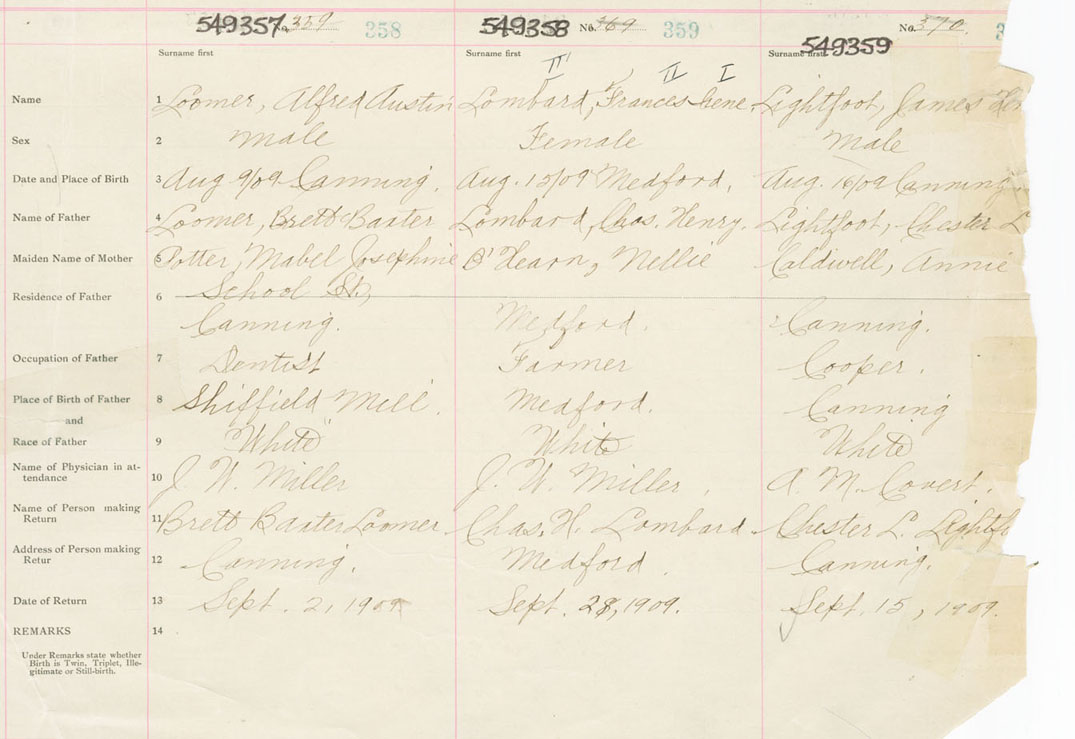 549357 No. 359 358 549358 No. 369 359 549359 No. 370 3
Surname first Surname first Surname first
III II I
Name 1 Loomer, Alfred Austin Lombard, Frances Irene Lightfoot, James
Sex 2 Male Female Male
Date and Place of Birth 3 Aug 9/09 Canning. Aug. 15/09 Medford. Aug. 16/09 Canning
Name of Father 4 Loomer, Brett Baxter Lombard, Chas. Henry. Lightfoot, Chester L
Maiden Name of Mother 5 Potter, Mabel Josephine O'Hearn, Nellie Caldwell, Annie
School St.,
Residence of Father 6 Canning. Medford. Canning.
Occupation of Father 7 Dentist Farmer Cooper.
Place of Birth of Father 8 Shiffield Mill. Medford. Canning
and
Race of Father 9 White White White
Name of Physician in at-
tendance 10 J. W. Miller J. W. Miller. A. M. Covert.
Name of Person making
Return 11 Brett Baxter Loomer Chas. H. Lombard Chester L. Lightfo
Address of Person making
Retur 12 Canning. Medford. Canning.
Date of Return 13 Sept. 2, 1909 Sept. 28, 1909. Sept. 15, 1909.
REMARKS 14
Under Remarks state whether
Birth is Twin, Triplet, Ille-
gitimate or Still-birth.